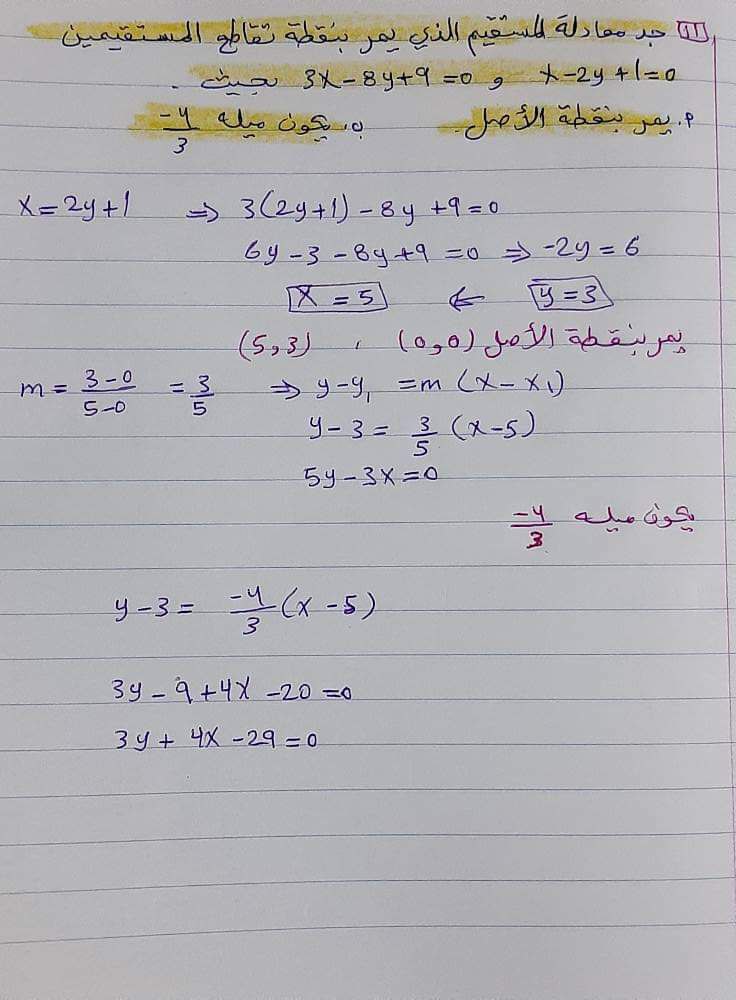 11 جد معادلة المستقيم الذي يمر بنقطة تقاطع المستقيمين
x-2y+1=0 و 3x-8y+9=0 بحيث .
أ. يمر بنقطة الأصل. ب. يكون ميله -4/3
x=2y+1 ⇒ 3(2y+1)-8y+9=0
6y-3-8y+9=0 ⇒ -2y=6
x=5 ⇐ y=3
يمر بنقطة الأصل (0,0) ، (5,3)
m = 3-0/5-0 = 3/5 ⇒ y-y₁=m(x-x₁)
y-3= 3/5 (x-5)
5y-3x=0
يكون ميله -4/3
y-3= -4/3 (x-5)
3y-9+4x-20=0
3y+4x-29=0